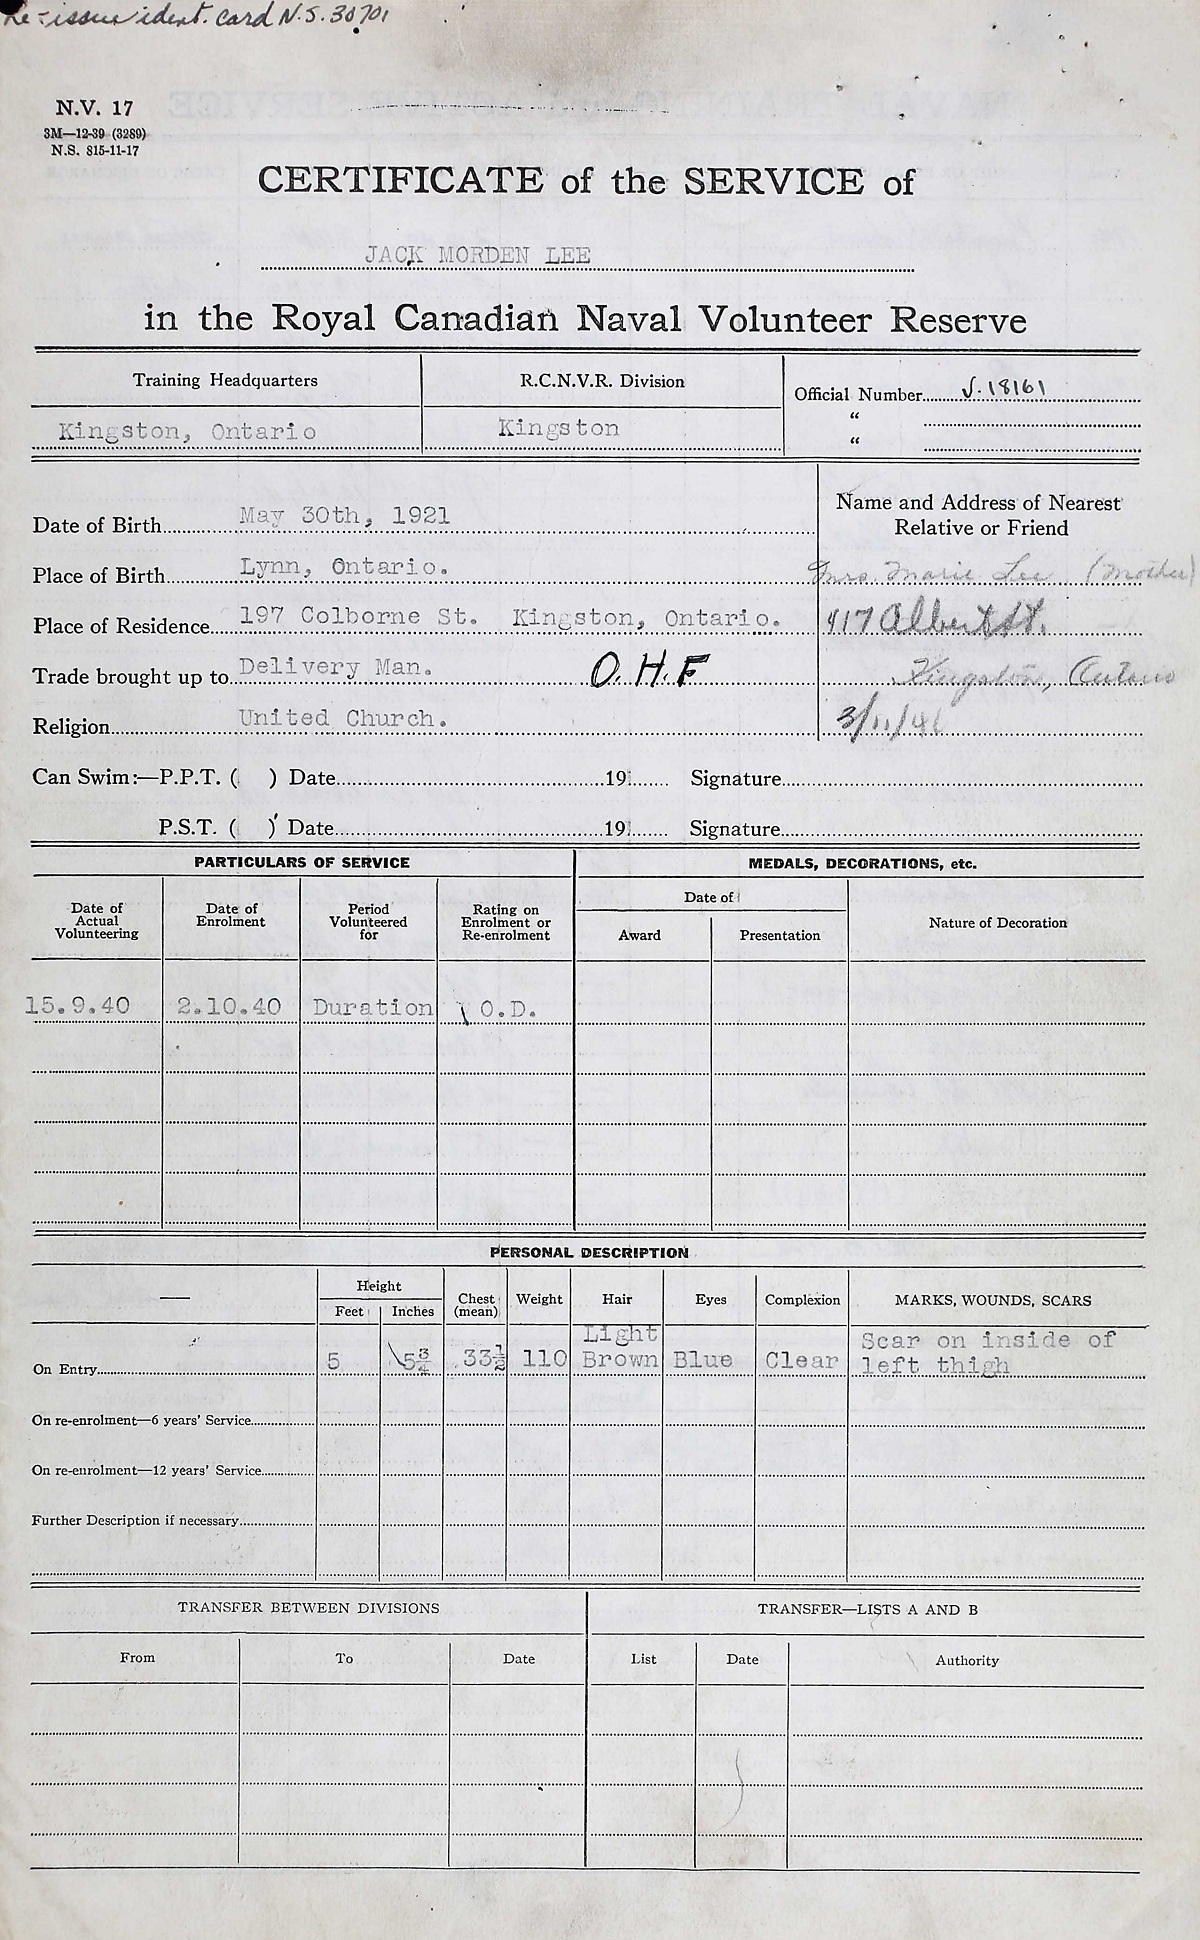 Re-issue ident. Card N.S. 30701
N.V. 17
3M—12-39 (3289)
N.S. 815-11-17
CERTIFICATE of the SERVICE of
JACK MORDEN LEE
in the Royal Canadian Naval Volunteer Reserve
Training Headquarters
R.C.N.V.R. Division
Official Number V.18161
Kingston, Ontario
Kingston
“
“
Name and Address of Nearest
Relative or Friend
Date of Birth May 30th, 1921
Place of Birth Lynn, Ontario.
Mrs. Marie Lee (Mother)
Place of Residence 197 Colborne St. Kingston, Ontario.
417 Albert St.
Trade brought up to Delivery Man. O.H.F
Kingston, Ontario
Religion United Church.
3/11/41
Can Swim:—P.P.T. ( ) Date 19 Signature
P.S.T. ( ) Date 19 Signature
PARTICULARS OF SERVICE
MEDALS, DECORATIONS, etc.
Date of Actual Volunteering
Date of Enrolment
Period Volunteered for
Rating on Enrolment or Re-enrolment
Date of
Award
Presentation
Nature of Decoration
15.9.40 2.10.40 Duration O.D.
PERSONAL DESCRIPTION
—
Height
Feet Inches
Chest (mean)
Weight
Hair
Eyes
Complexion
MARKS, WOUNDS, SCARS
On Entry 5 5¾ 33½ 110 Light Brown Blue Clear Scar on inside of left thigh
On re-enrolment—6 years' Service
On re-enrolment—12 years' Service
Further Description if necessary
TRANSFER BETWEEN DIVISIONS
TRANSFER—LISTS A AND B
From To Date List Date Authority